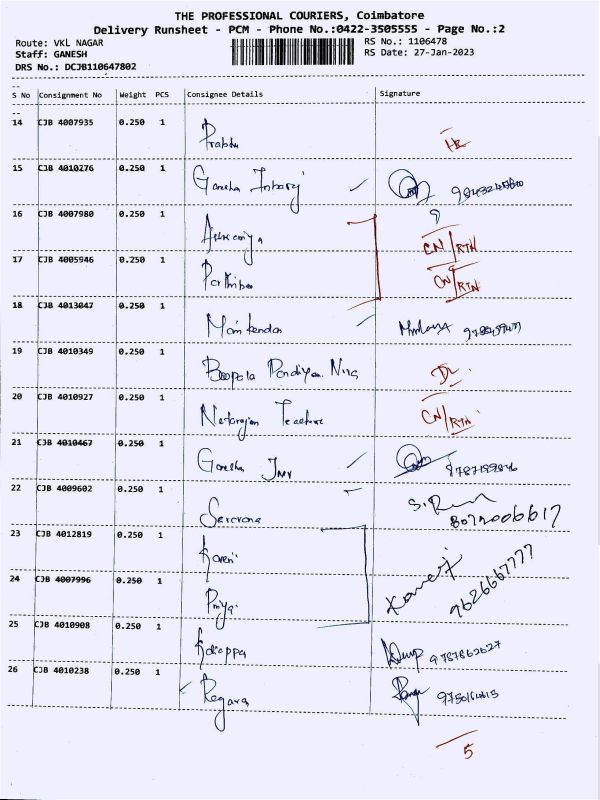 THE PROFESSIONAL COURIERS, Coimbatore
Delivery Runsheet - PCM - Phone No.:0422-3505555 - Page No.:2
Route: VKL NAGAR RS No.: 1106478
Staff: GANESH RS Date: 27-Jan-2023
DRS No.: DCJB110647802
S No Consignment No Weight PCS Consignee Details Signature
14 CJB 4007935 0.250 1 Prabhu
15 CJB 4010276 0.250 1 Ganesha
16 CJB 4007980 0.250 1 CN/RTN
17 CJB 4005946 0.250 1 Parthiban CN/RTN
18 CJB 4013047 0.250 1 Manikandan
19 CJB 4010349 0.250 1 DL
20 CJB 4010927 0.250 1 Natarajan CN/RTN
21 CJB 4010467 0.250 1 Ganesha
22 CJB 4009602 0.250 1 Saravana 8072006617
23 CJB 4012819 0.250 1
24 CJB 4007996 0.250 1 Priya 9626667777
25 CJB 4010908 0.250 1 9787862627
26 CJB 4010238 0.250 1
5